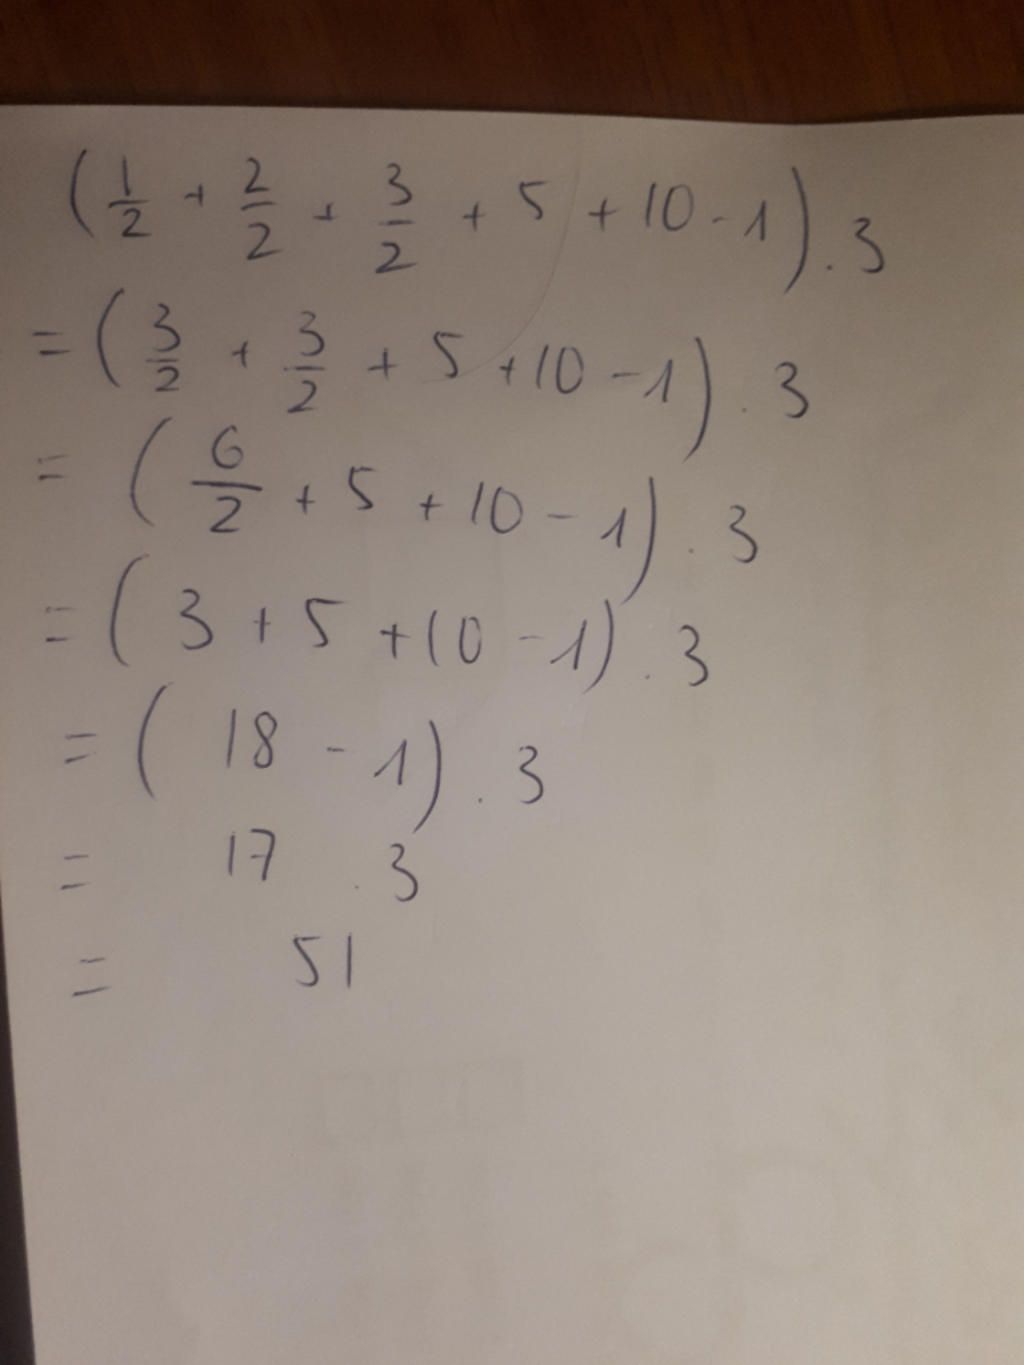 (1/2 + 2/2 + 3/2 + 5 + 10 - 1) . 3
= (3/2 + 3/2 + 5 + 10 - 1) . 3
= (6/2 + 5 + 10 - 1) . 3
= (3 + 5 + 10 - 1) . 3
= (18 - 1) . 3
= 17 . 3
= 51